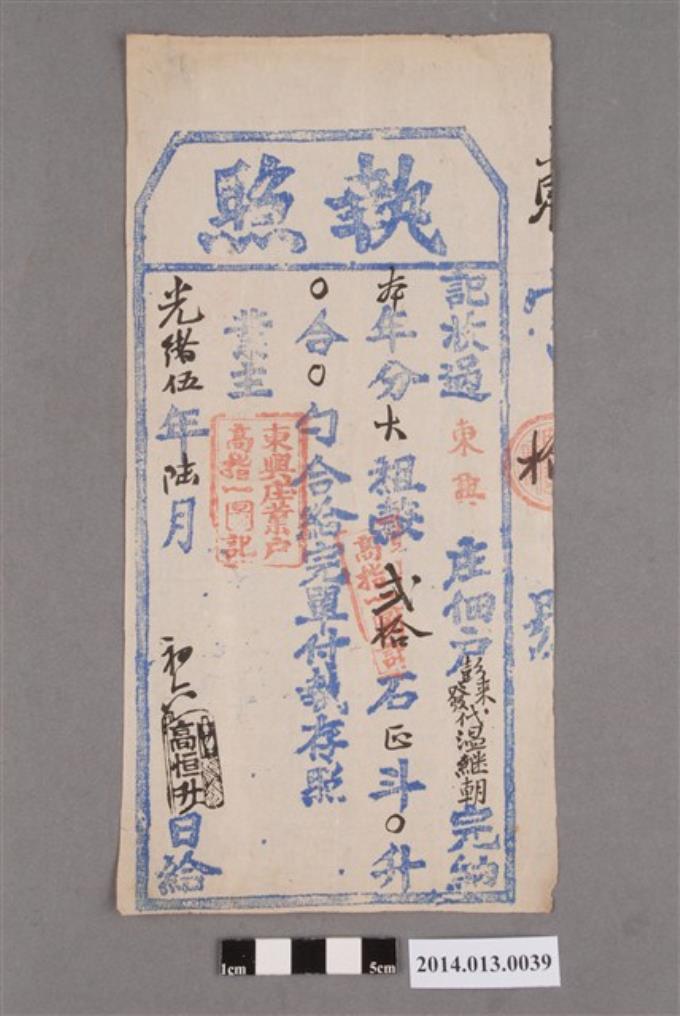 執照
記狀過東興庄佃戶彭來發代温繼朝完納
本年分大租穀弍拾石正斗〇升
〇合〇勺合給完單付執存照
業主
東興庄業戶
高指一圓記
光緒伍年陸月初六日給
高恒升
拾
1cm 5cm
2014.013.0039